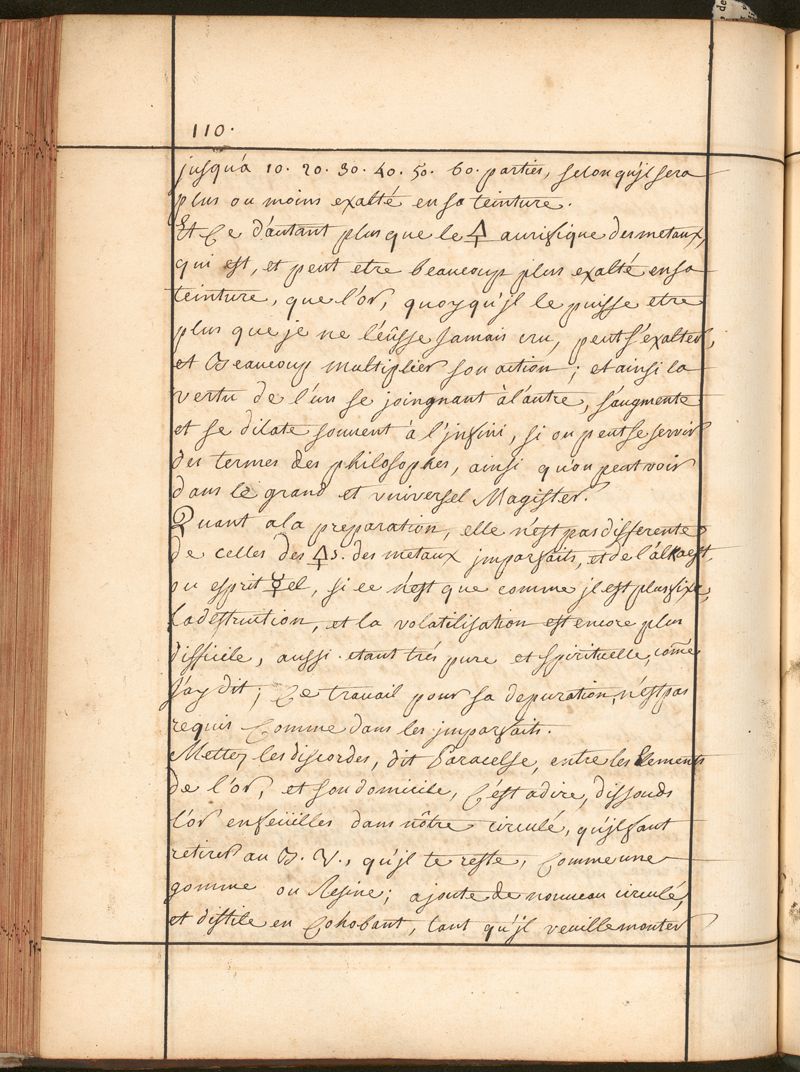 110.
jusqu'a 10. 20. 30. 40. 50. 60. parties, selon qu'jl sera
plus ou moins exalté en sa teinture.
Et Ce d'autant plus que le 🜍 aurifique des metaux,
qui est, et peut etre beaucoup plus exalté en sa
teinture, que l'or, quoyqu'jl le puisse etre
plus que je ne l'éusse Jamais cru, peut s'exalter,
et Beaucoup multiplier son action; et ainsi la
vertu de l'un se joingnant à l'autre, s'augmente
et se dilate souvent à l'jnfini, si on peut se servir
des termes des philosophes, ainsi qu'on peut voir
dans le grand et vniversel Magister.
Quant a la preparation, elle n'est pas differente
de celles des 🜍s. des metaux jmparfaits, et de l'alkaest,
ou esprit ☿el, si ce n'est que comme jl est plus fixe,
La destruction, et la volatilisation est encore plus
difficile, aussi etant trés pure et spirituelle, come
J'ay dit; Ce travail pour sa depuration, n'est pas
requis Comme dans les jmparfaits.
Mettez les discordes, dit Paracelse, entre les Elements
de l'or, et son domicile, C'est a dire, dissouds
l'or en feüilles dans nôtre circulé, qu'jl faut
retirer au B. V., qu'jl te reste, Comme une
gomme ou Resine; ajoute de nouveau circulé,
et distile en Cohobant, tant qu'jl veuille monter